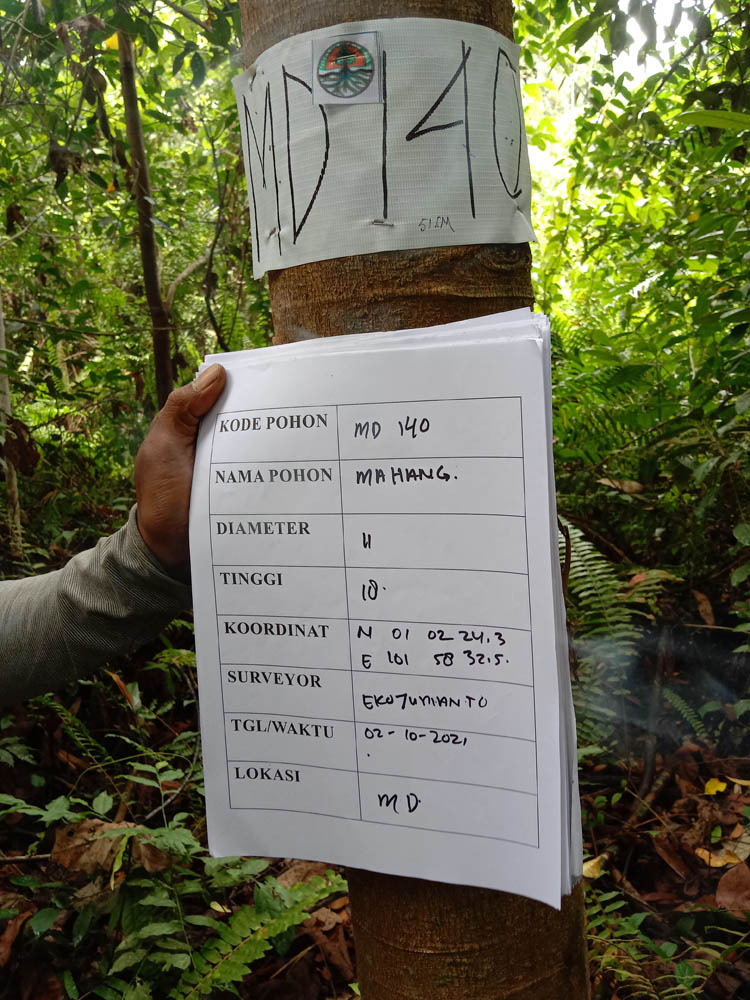 MD 140
51 CM
KODE POHON MD 140
NAMA POHON MAHANG.
DIAMETER 11
TINGGI 18.
KOORDINAT N 01 02 24.3
E 101 58 32.5.
SURVEYOR EKO JUMIANTO
TGL/WAKTU 02-10-2021
LOKASI MD